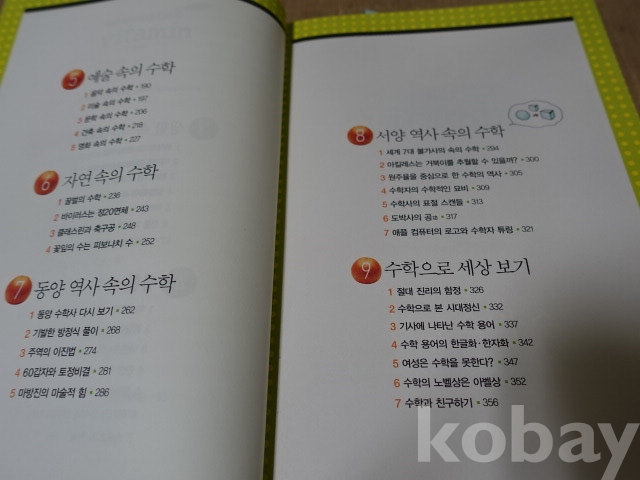 5 예술 속의 수학
1 음악 속의 수학 • 190
2 미술 속의 수학 • 197
3 문학 속의 수학 • 206
4 건축 속의 수학 • 218
5 영화 속의 수학 • 227
6 자연 속의 수학
1 꿀벌의 수학 • 236
2 바이러스는 정20면체 • 243
3 플래스린과 축구공 • 248
4 꽃잎의 수는 피보나치 수 • 252
7 동양 역사 속의 수학
1 동양 수학사 다시 보기 • 262
2 기발한 방정식 풀이 • 268
3 주역의 이진법 • 274
4 60갑자와 토정비결 • 281
5 마방진의 마술적 힘 • 286
8 서양 역사 속의 수학
1 세계 7대 불가사의 속의 수학 • 294
2 아킬레스는 거북이를 추월할 수 있을까? • 300
3 원주율을 중심으로 한 수학의 역사 • 305
4 수학자의 수학적인 묘비 • 309
5 수학사의 표절 스캔들 • 313
6 도박사의 공 • 317
7 애플 컴퓨터의 로고와 수학자 튜링 • 321
9 수학으로 세상 보기
1 절대 진리의 함정 • 326
2 수학으로 본 시대정신 • 332
3 기사에 나타난 수학 용어 • 337
4 수학 용어의 한글화·한자화 • 342
5 여성은 수학을 못한다? • 347
6 수학의 노벨상은 아벨상 • 352
7 수학과 친구하기 • 356
kobay